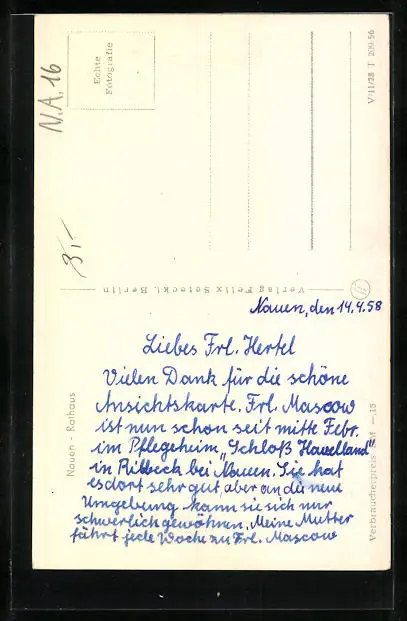 N.A. 16
Echte
Fotografie
V/11/28 T 209/56
3,-
Verlag Felix Setecki, Berlin
Nauen - Rathaus
Verbraucherpreis —.15
Nauen, den 14.4.58
Liebes Frl. Hertel
Vielen Dank für die schöne
Ansichtskarte. Frl. Mascow
ist nun schon seit mitte Febr.
im Pflegeheim „Schloß Havelland"
in Ribbeck bei Nauen. Sie hat
es dort sehr gut, aber an die neue
Umgebung kann sie sich nur
schwerlich gewöhnen. Meine Mutter
fährt jede Woche zu Frl. Mascow